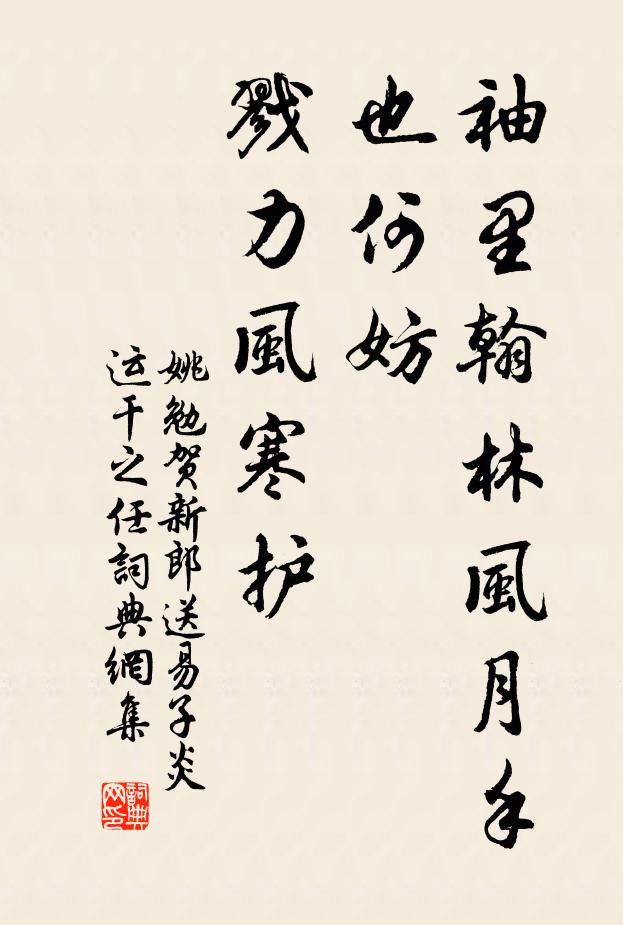 袖里翰林風月手
也何妨
戮力風寒护
姚勉贺新郎送易子炎
运干之任詞典網集
詞典
网印